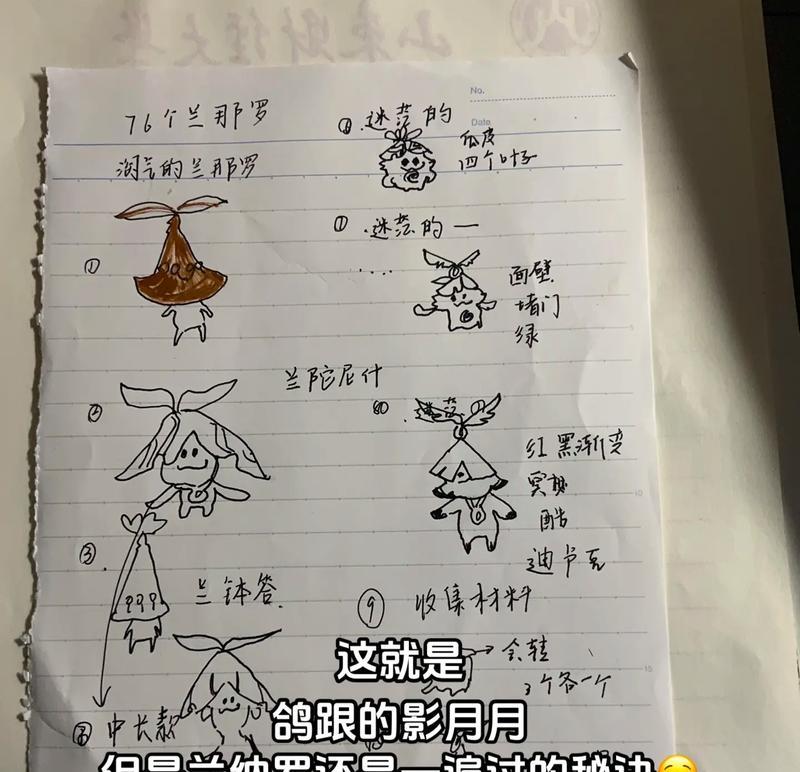 山东财经大学
No.
Date
76个兰那罗
淘气的兰那罗
①
②
兰陀尼什
③
兰钵答.
中长款
迷茫的
瓜皮
四个叶子
① 迷茫的一
....
面壁
堵门
绿
迷茫的
红黑渐变
酷
迪卢克
⑨ 收集材料
会转
3个各一个
5
10
15
这就是
鸽跟的影月月
但是兰纳罗还是一遍过的秘诀